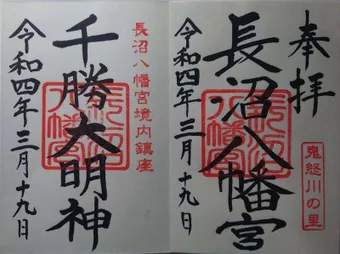 奉拝
長沼八幡宮
鬼怒川の里
令和四年三月十九日
長沼八幡宮境内鎮座
千勝大明神
令和四年三月十九日